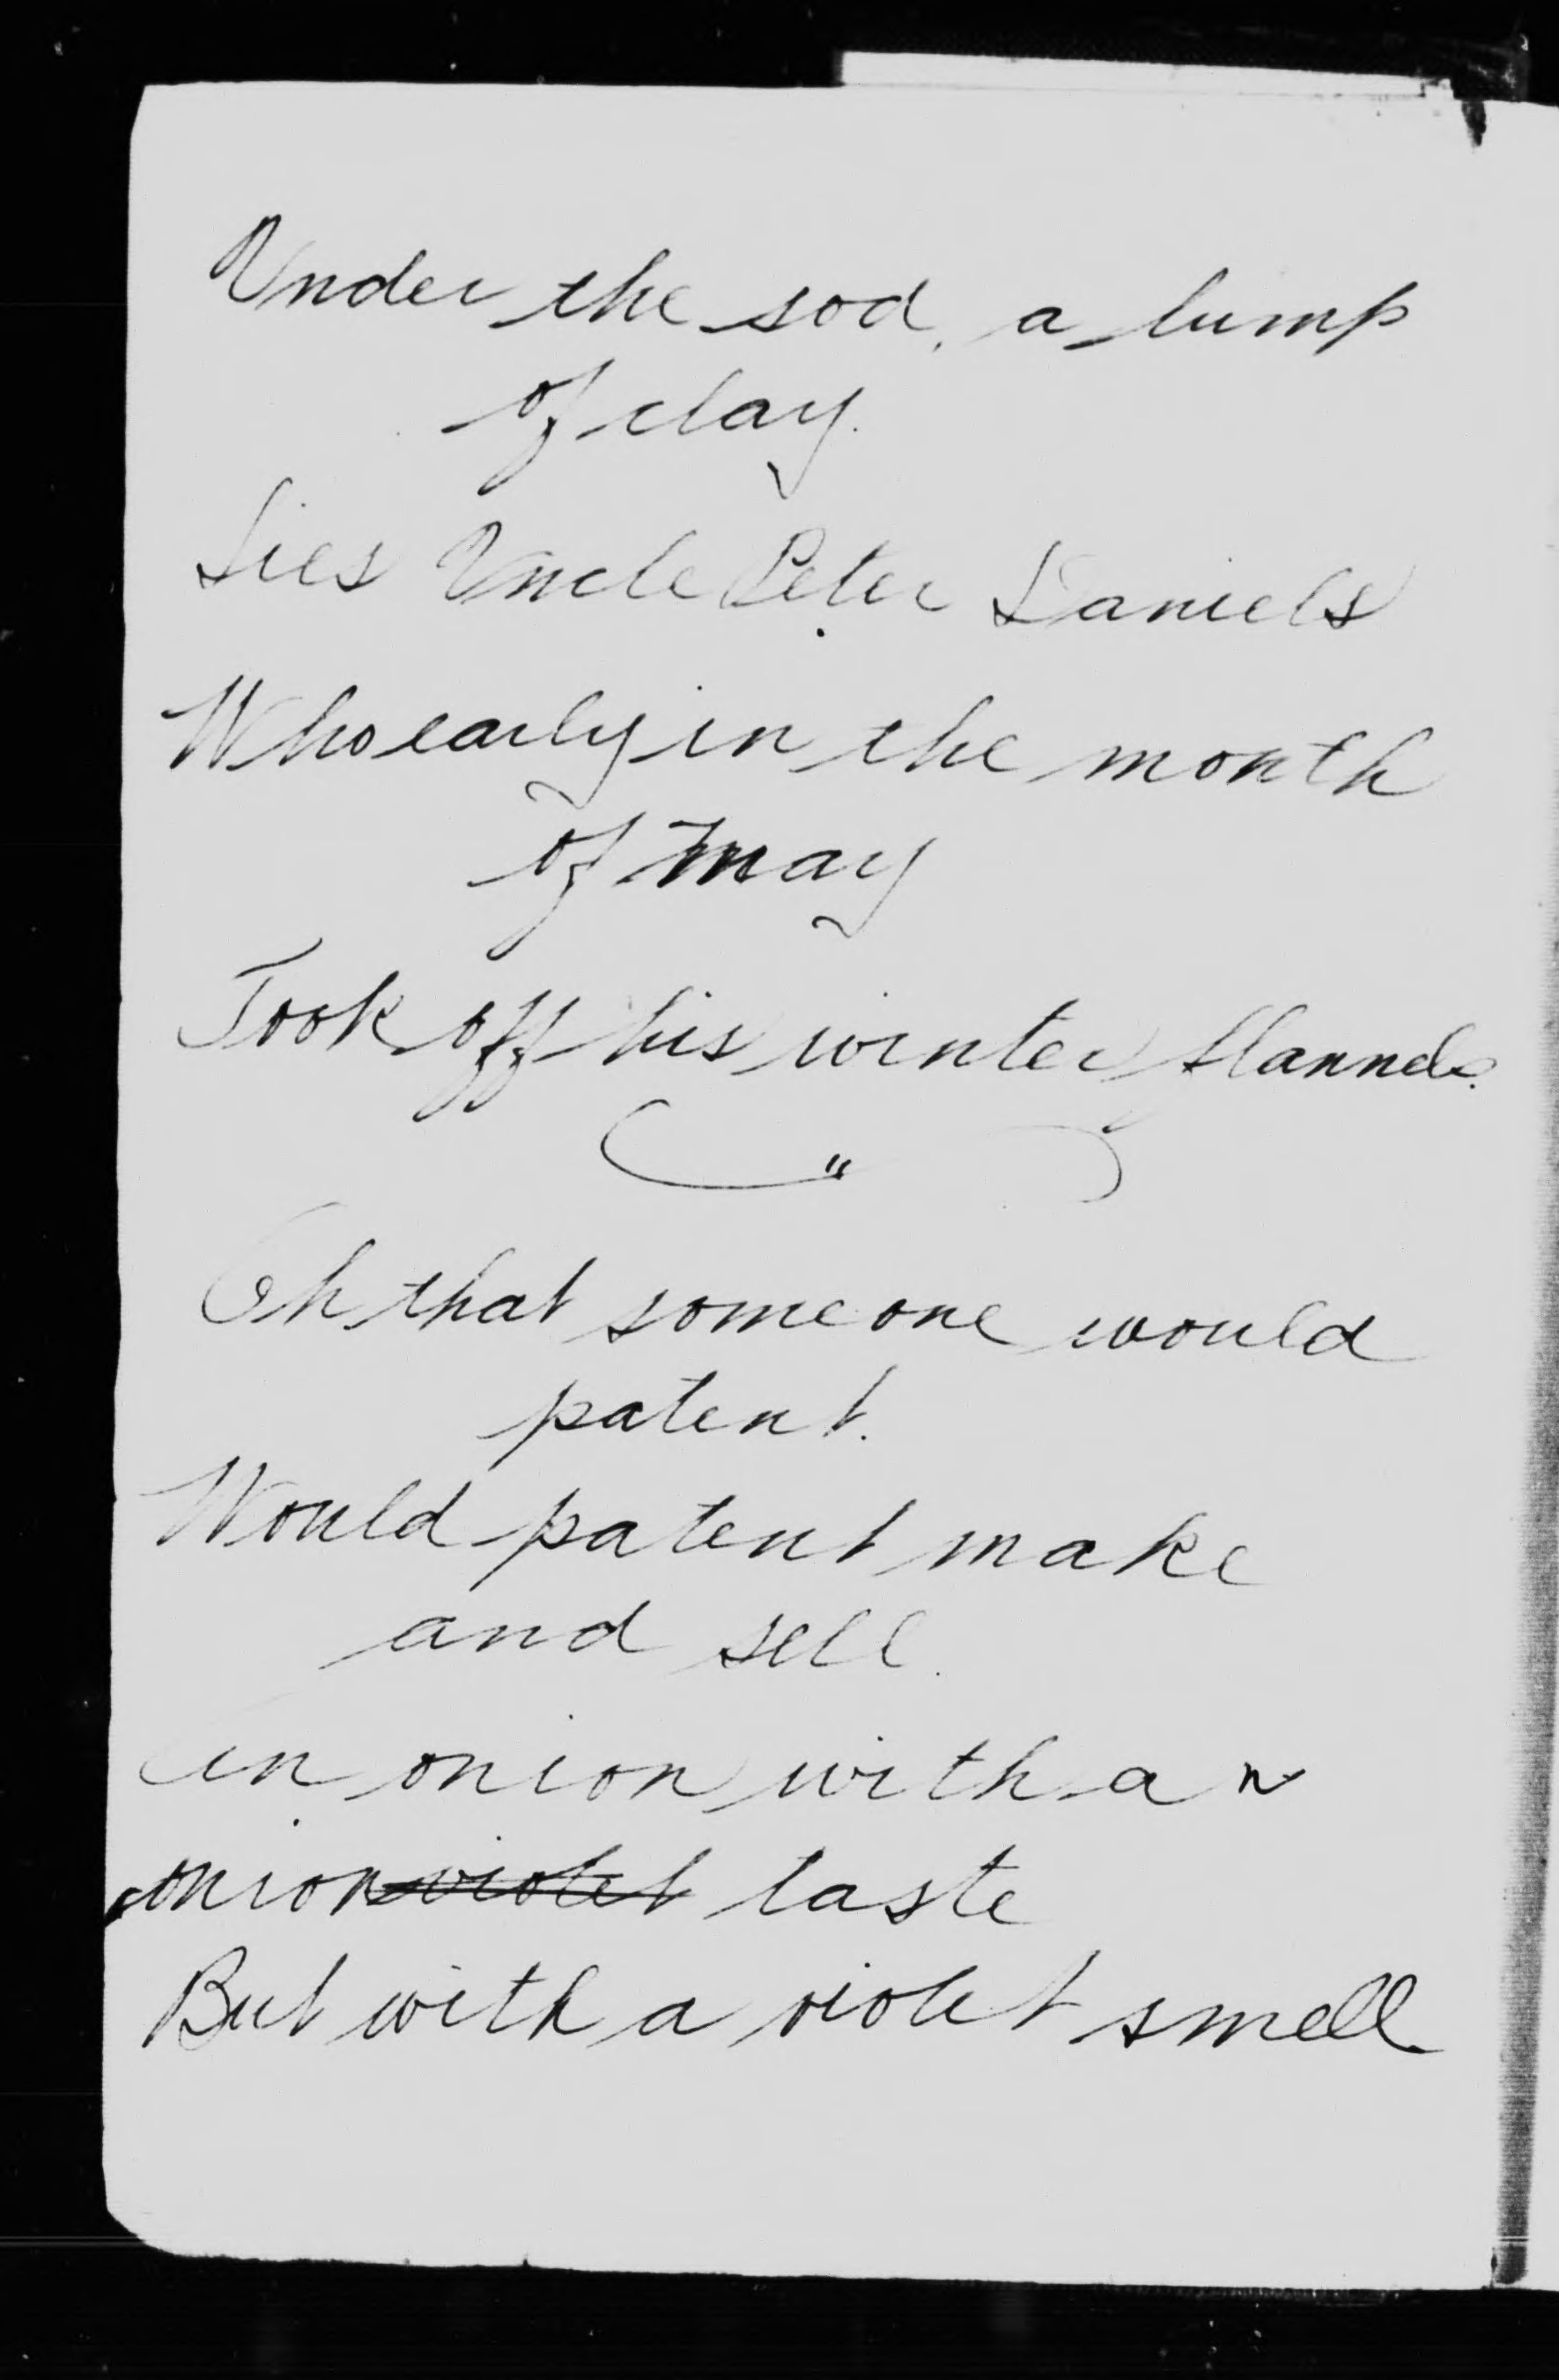 Under the sod, a lump
of clay.
Lies Uncle Peter Daniels
Who early in the month
of May
Took off his winter flannels.
"
Oh that someone would
patent.
Would patent make
and sell.
An onion with an
onion violet taste
But with a violet smell